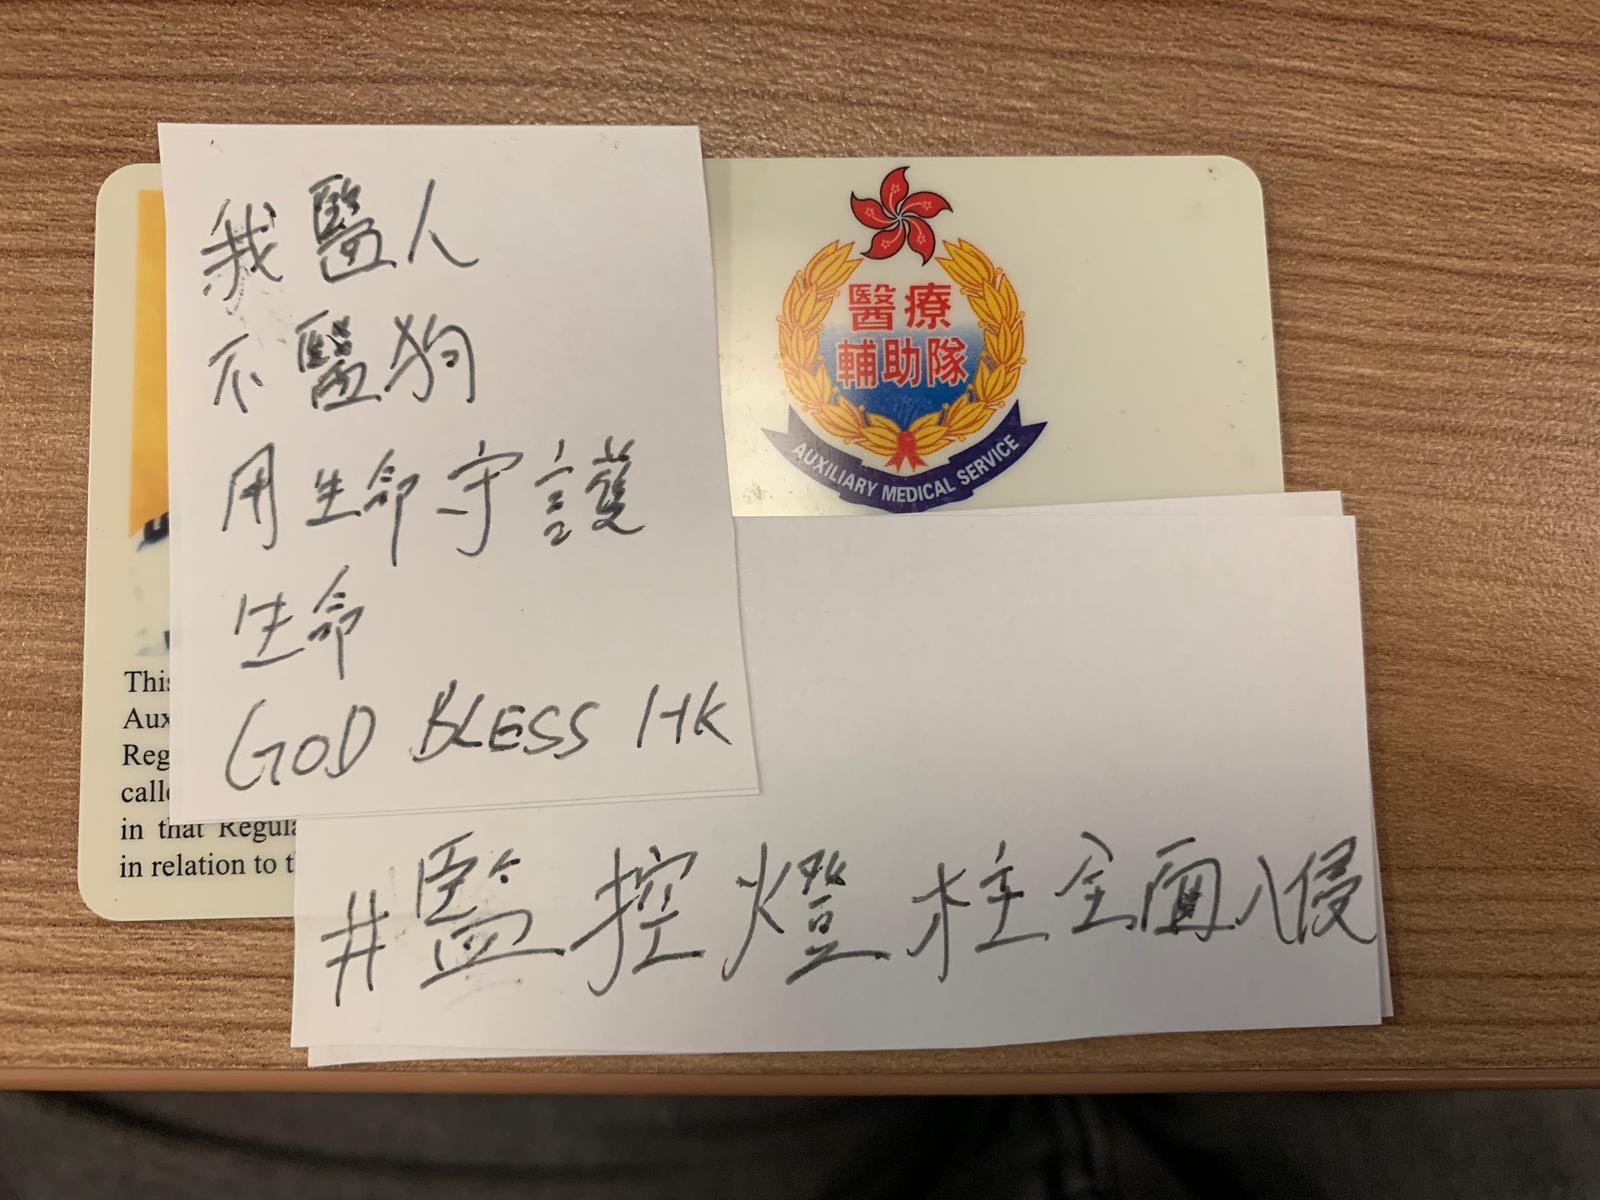 我醫人
不醫狗
用生命守護
生命
GOD BLESS HK
醫療
輔助隊
AUXILIARY MEDICAL SERVICE
This
in that
in relation to
#監控燈柱全面入侵